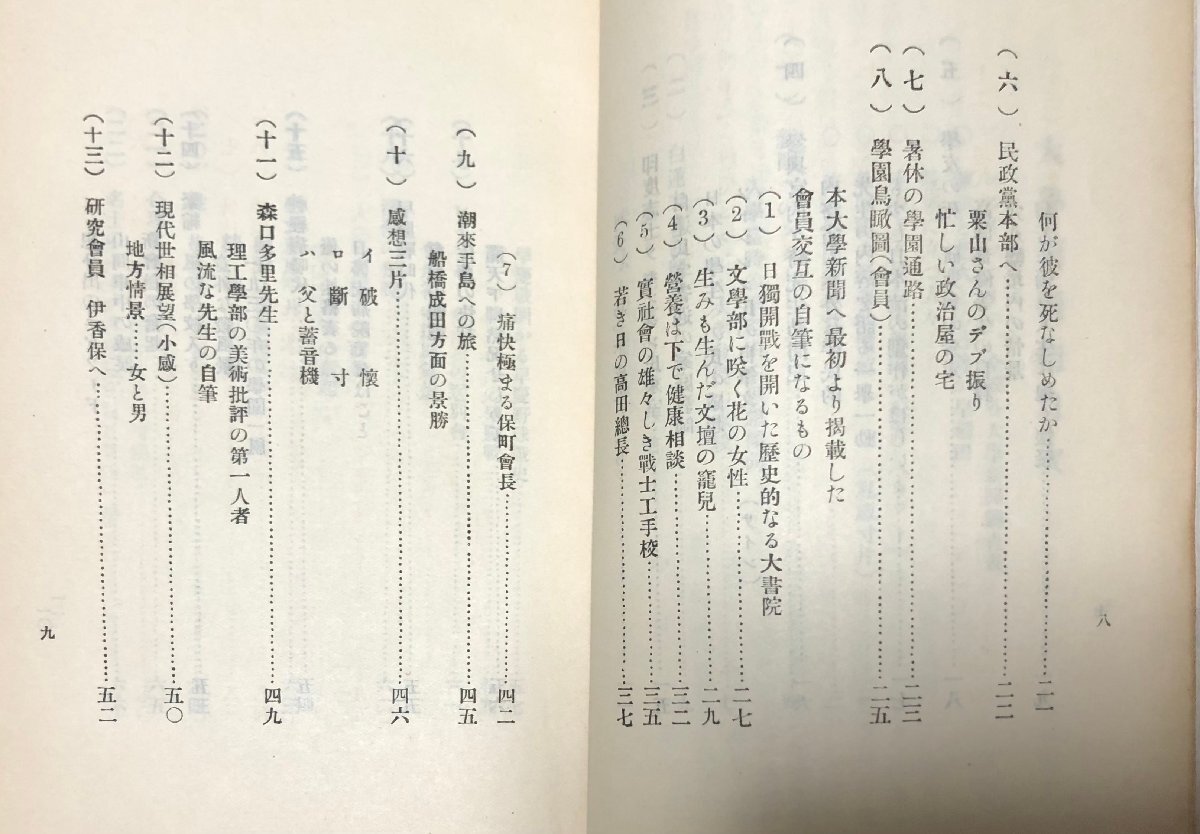 何が彼を死なしめたか……二一
(六) 民政黨本部へ……二二
粟山さんのデブ振り
忙しい政治屋の宅
(七) 暑休の學園通路……二三
(八) 學園鳥瞰圖(會員)……二五
本大學新聞へ最初より揭載した
會員交互の自筆になるもの
(1) 日獨開戰を開いた歷史的なる大書院
(2) 文學部に咲く花の女性……二七
(3) 生みも生んだ文壇の寵兒……二九
(4) 營養は下で健康相談……三二
(5) 實社會の雄々しき戰士工手校……三五
(6) 若き日の高田總長……三七
八
(7) 痛快極まる保町會長……四二
(九) 潮來手島への旅……四五
船橋成田方面の景勝
(十) 感想三片……四六
イ 破懷
ロ 斷寸
ハ 父と蓄音機
(十一) 森口多里先生……四九
理工學部の美術批評の第一人者
風流な先生の自筆
(十二) 現代世相展望(小感)……五〇
地方情景……女と男
(十三) 研究會員 伊香保へ……五二
九